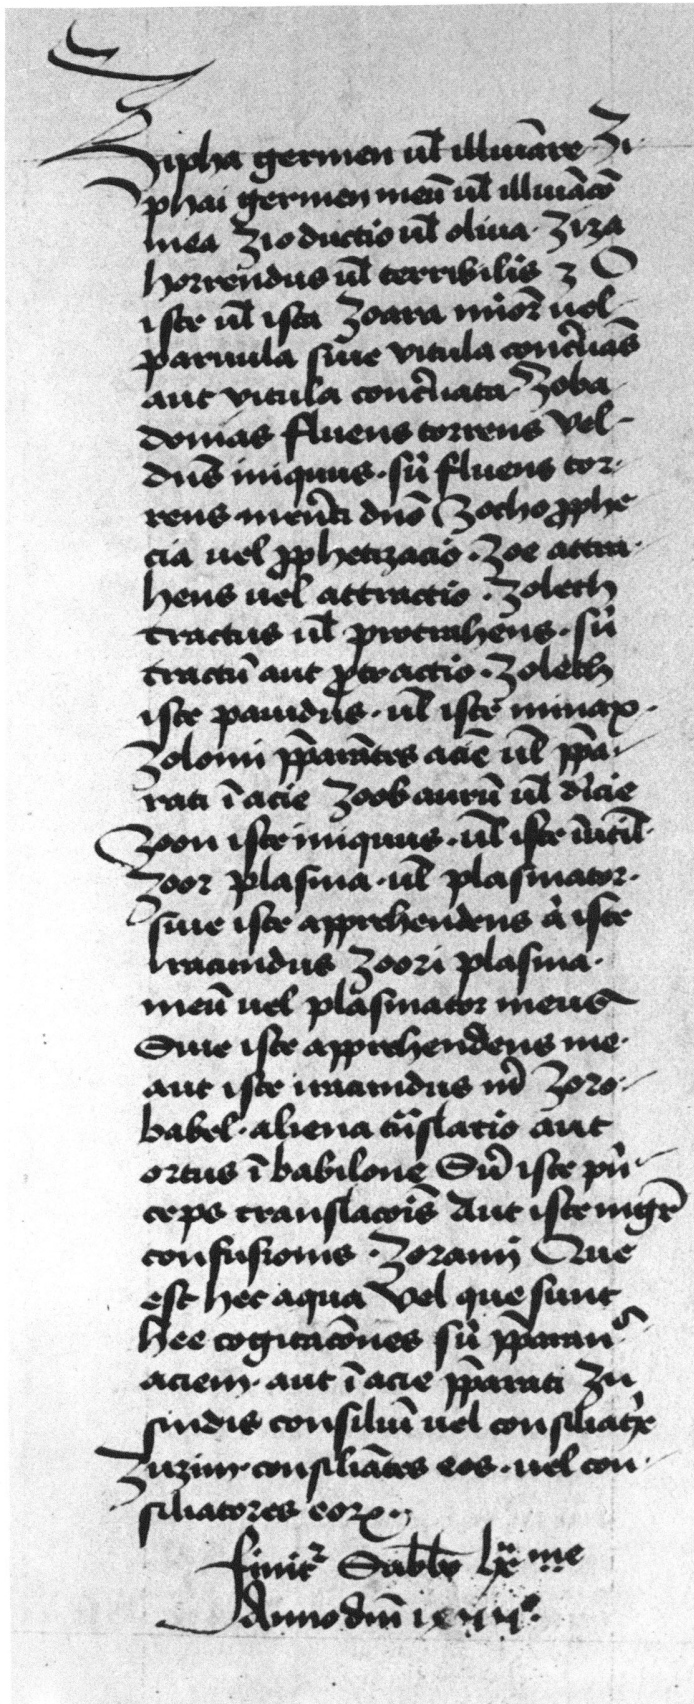 Zipha germen ul̄ illuīare · Zi
phai germen meū ul̄ illuīacō
mea Zio ductio ul̄ oliua · Ziza
horrendus ul̄ terribilis Z O
iste ul̄ ista Zoara mīor uel
paruula siue vitula cont̄nās
aut vitula cont̄nata · Zoba
domias fluens torrens Vel
dn̄s iniquus · sū fluens tor
rens dnō Zocho ꝓphe
cia uel ꝓphetizacio · Zoe attra
hens uel attractio · Zoleth
tractus ul̄ protrahens · sū
tractū aut ꝓtractio · Zoleth
iste pauidus · ul̄ iste minax ·
Zolomi p̄parātes aciē ul̄ p̄pa
rati ī acie Zoob aurū ul̄
Zoon iste iniquus · ul̄ iste īutil̄
Zoor plasma · ul̄ plasmator ·
siue iste apprehendens iste
iracundus Zoori plasma ·
meū uel plasmator meus
Siue iste apprehendens me ·
aut iste iracundus m̄ Zoro
babel · aliena trāslatio aut
ortus ī babilone Siū iste pn̄
ceps translacōis Aut iste mḡr
confusionis · Zorami Que
est hec aqua Vel que sunt
hee cogitacōnes sū p̄paran
aciem · aut ī acie p̄parati Zu
sindis consiliū uel consiliat̄r
Zuzim · consiliātes eos · uel con
siliatores eorꝝ
finitᷣ Sabb̄o lxͣͤ me
Anno dnī